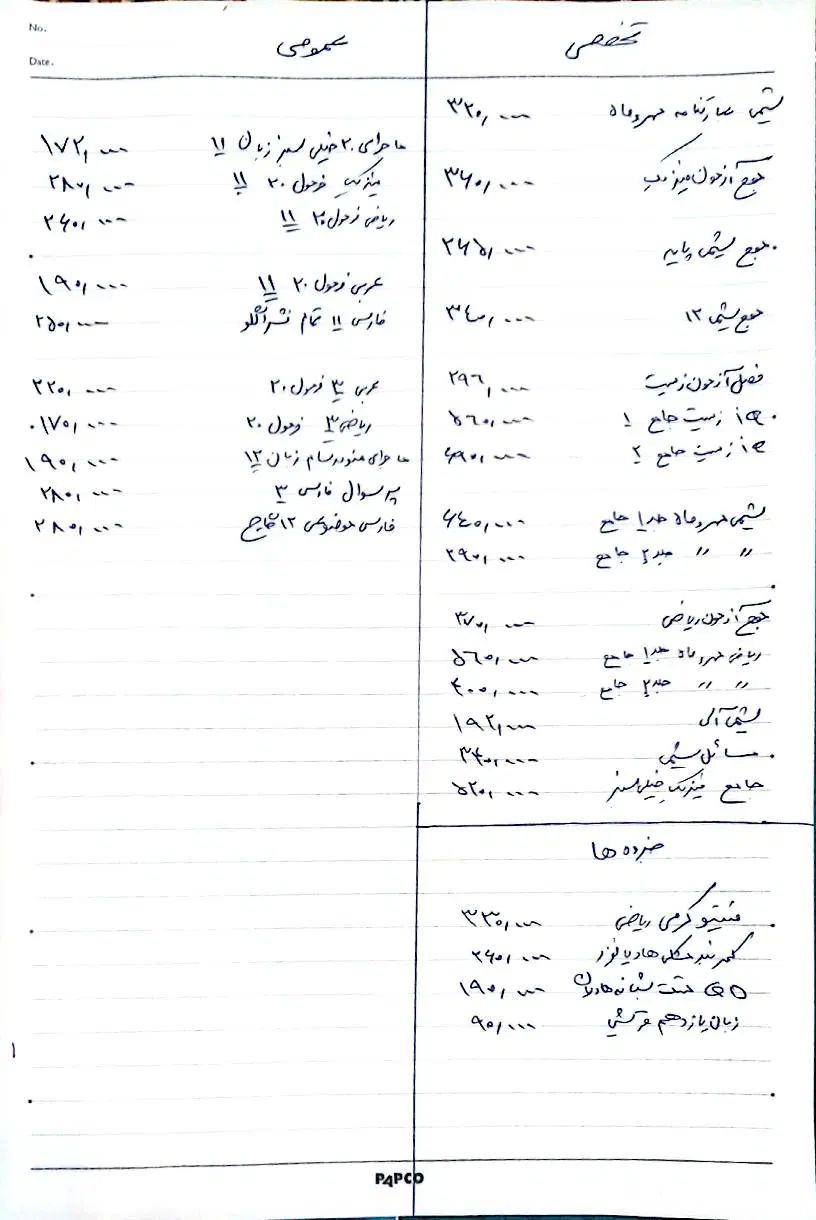 No.
Date.
تخصصی
شیمی مهروماه ۳۲۰,۰۰۰
موج آزمون فیزیک ۳۶۰,۰۰۰
موج شیمی پایه ۲۶۵,۰۰۰
موج شیمی ۱۲ ۳۴۰,۰۰۰
فصل آزمون زیست ۲۹۶,۰۰۰
زیست جامع ۱ ۵۶۰,۰۰۰
زیست جامع ۲ ۶۹۰,۰۰۰
شیمی مهروماه جلد۱ جامع ۶۴۰,۰۰۰
〃 〃 جلد۲ جامع ۲۹۰,۰۰۰
موج آزمون ریاضی ۳۷۰,۰۰۰
ریاضی مهروماه جلد۱ جامع ۵۶۰,۰۰۰
〃 〃 جلد۲ جامع ۴۰۰,۰۰۰
شیمی آلی ۱۹۲,۰۰۰
مسائل شیمی ۳۴۰,۰۰۰
جامع فیزیک خیلی سبز ۵۲۰,۰۰۰
جزوه ها
ریاضی ۳۳۰,۰۰۰
۲۶۰,۰۰۰
۱۹۰,۰۰۰
زبان یازدهم ۹۰,۰۰۰
عمومی
ماجرای ۲۰ خیلی سبز زبان ۱۱ ۱۷۲,۰۰۰
فیزیک فرمول ۲۰ ۱۱ ۲۸۰,۰۰۰
ریاضی فرمول ۲۰ ۱۱ ۲۶۰,۰۰۰
عربی فرمول ۲۰ ۱۱ ۱۹۰,۰۰۰
فارسی ۱۱ تمام نشر الگو ۲۵۰,۰۰۰
عربی ۳ فرمول ۲۰ ۲۲۰,۰۰۰
ریاضی ۳ فرمول ۲۰ ۱۷۰,۰۰۰
ماجرای زبان ۱۲ ۱۹۰,۰۰۰
پرسوال فارسی ۳ ۲۸۰,۰۰۰
فارسی موضوعی ۱۲ گاج ۲۸۰,۰۰۰
PAPCO